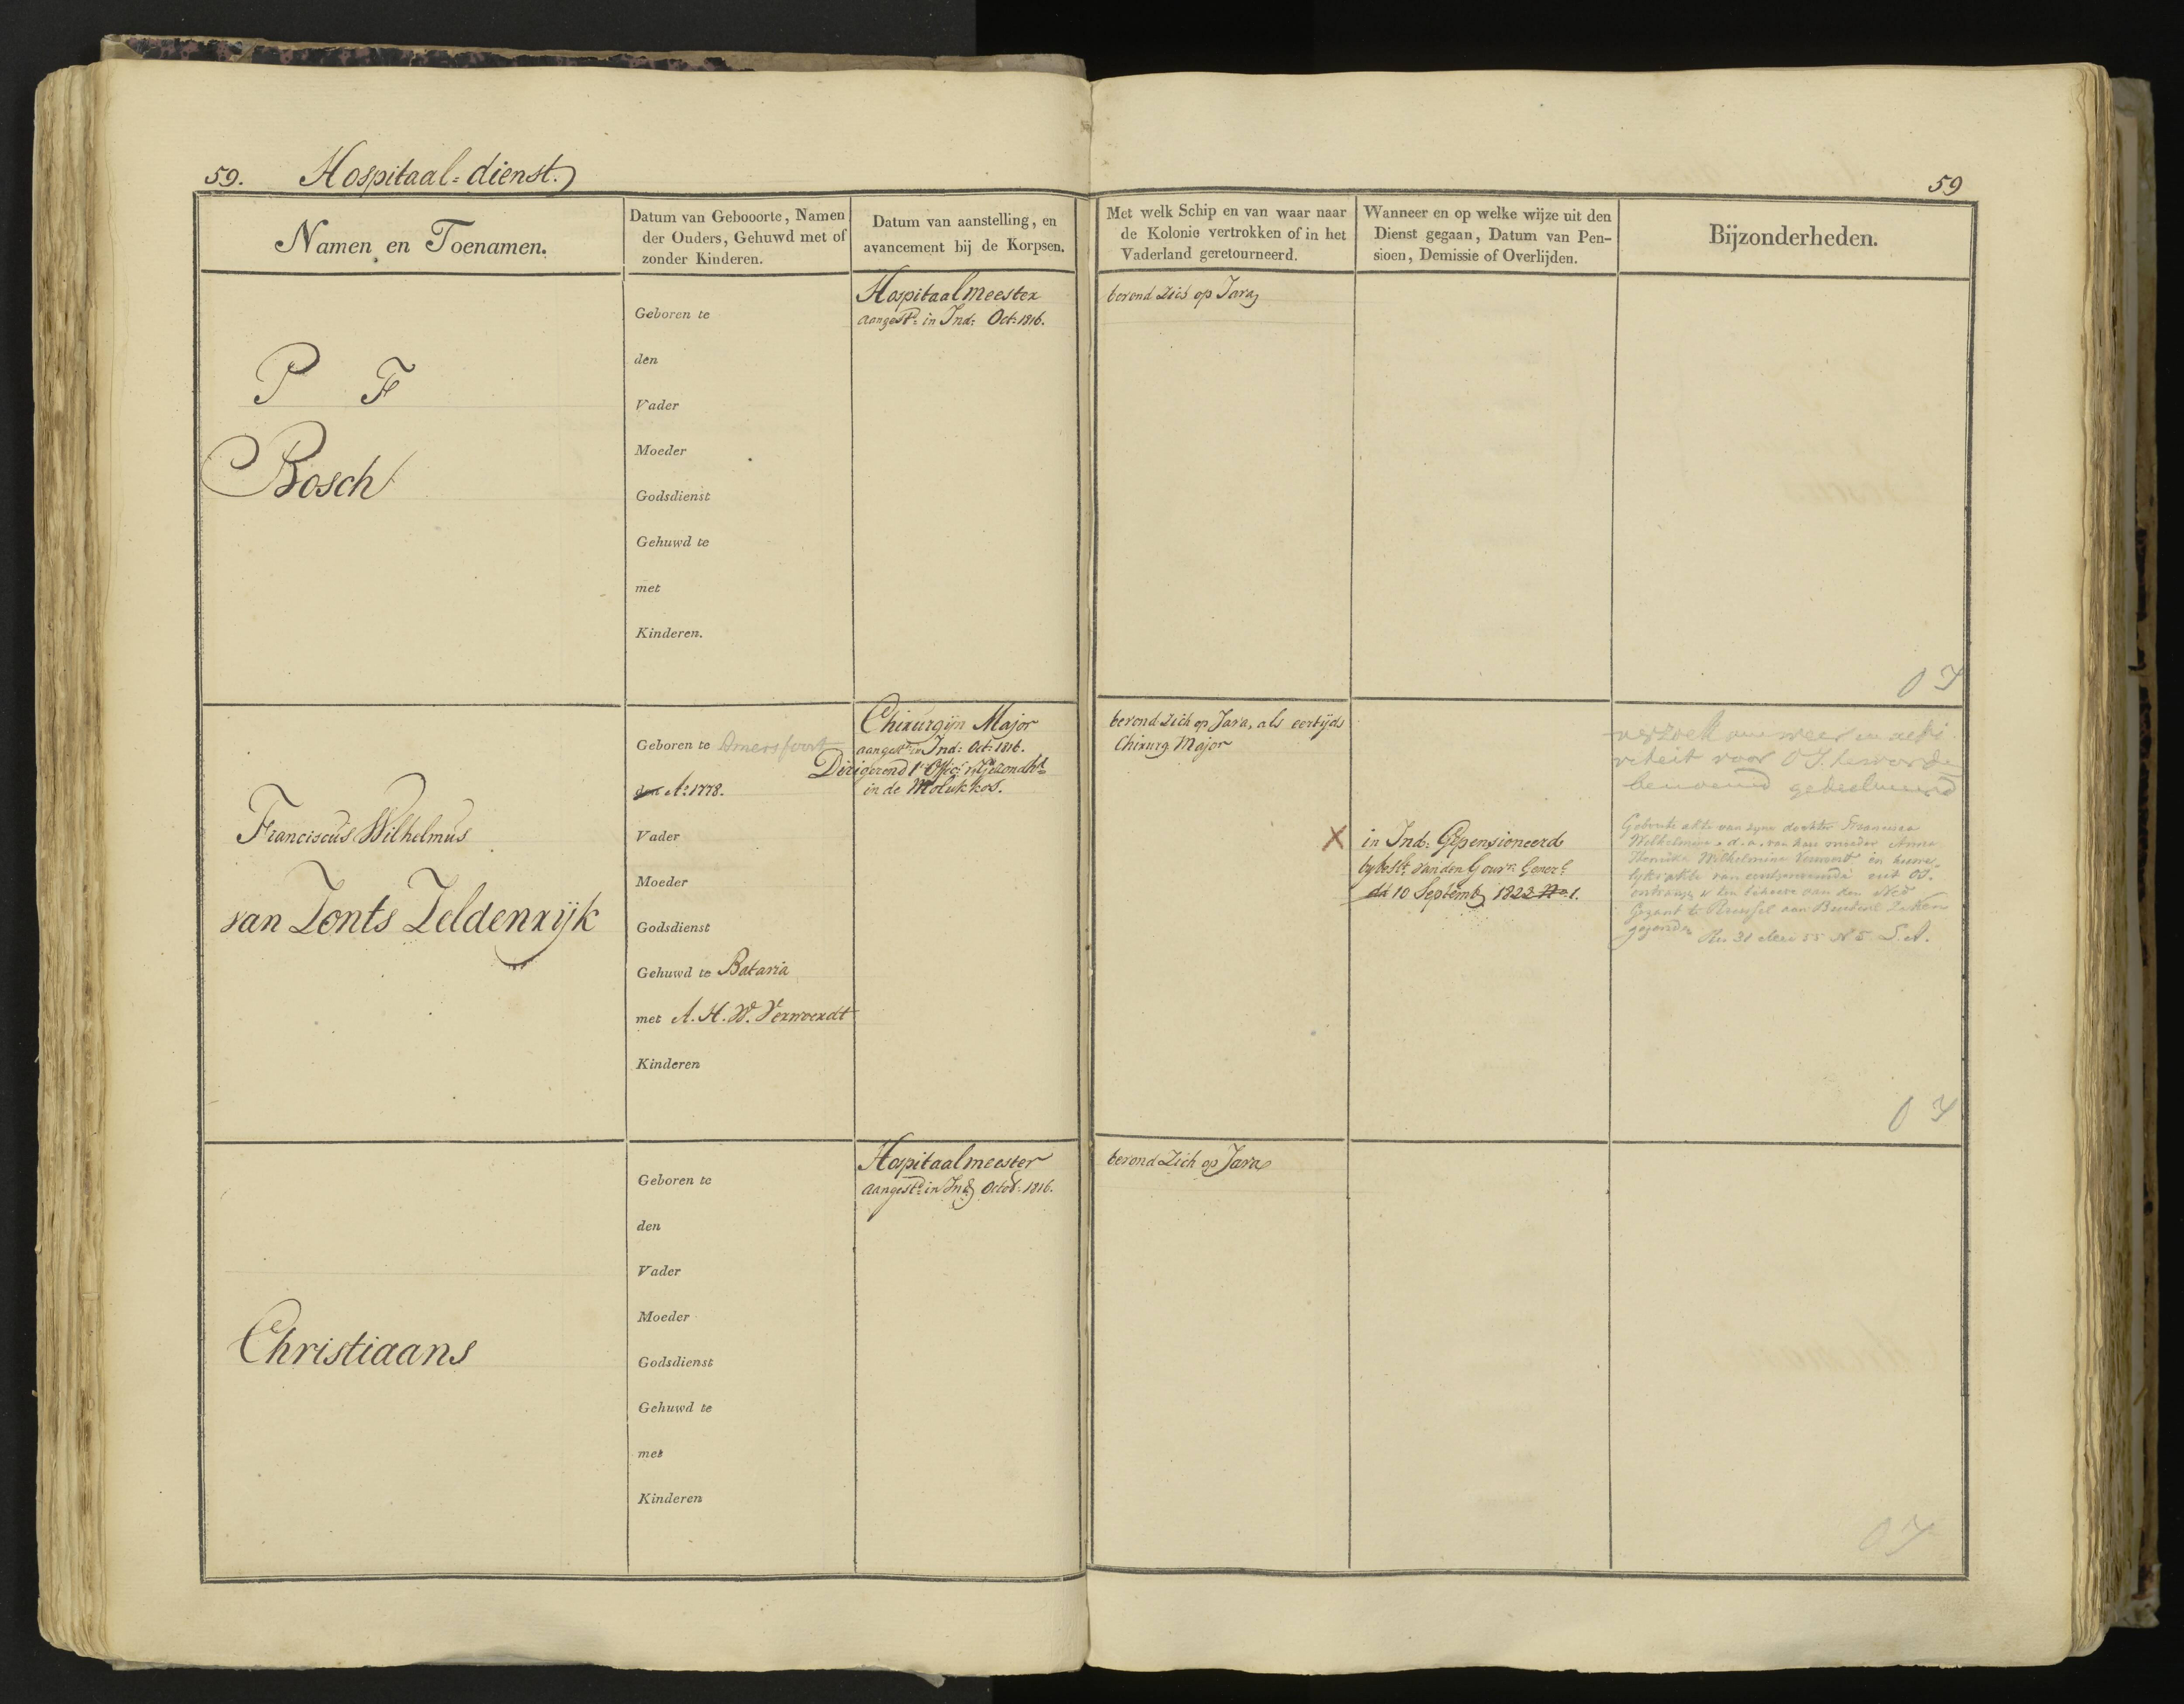 59. Hospitaal-dienst.
59
Namen en Toenamen.
Datum van Gebooorte, Namen
der Ouders, Gehuwd met of
zonder Kinderen.
Datum van aanstelling, en
avancement bij de Korpsen.
Met welk Schip en van waar naar
de Kolonie vertrokken of in het
Vaderland geretourneerd.
Wanneer en op welke wijze uit den
Dienst gegaan, Datum van Pen-
sioen, Demissie of Overlijden.
Bijzonderheden.
P F
Bosch
Geboren te
den
Vader
Moeder
Godsdienst
Gehuwd te
met
Kinderen.
Hospitaalmeester
aangest: in Ind: Oct: 1816.
bevond zich op Java
O I
Franciscus Wilhelmus
van Zonts Zeldenrijk
Geboren te Amersfoort
den Ao 1778.
Vader
Moeder
Godsdienst
Gehuwd te Batavia
met A. H. W. Verwerdt
Kinderen
Chirurgijn Major
aangest: in Ind: Oct: 1816.
Dirigerend 1e Offic: v. Gezondhd
in de Molukkos.
bevond zich op Java, als eertijds
Chirurg. Major
X in Ind: Gepensioneerd
by beslt: van den Gouvr: Generl
dd 10 Septemb 1823 No. 1.
verzoek om weer in acti
viteit voor O I. te worden
benoemd
Geboorte akte van zyne dochter Francisca
Wilhelmina d. a. van hare moeder Anna
Wilhelmina Verwerdt en huwe-
lyks akte van uit OI.
ontvangen den Ned
Gezant te Brussel aan Buitenl Zaken
gezonden
Res 31 Mei 55 N 5 L. A.
O I
Christiaans
Geboren te
den
Vader
Moeder
Godsdienst
Gehuwd te
met
Kinderen
Hospitaalmeester
aangest: in Ind Octob: 1816.
bevond zich op Java
O I